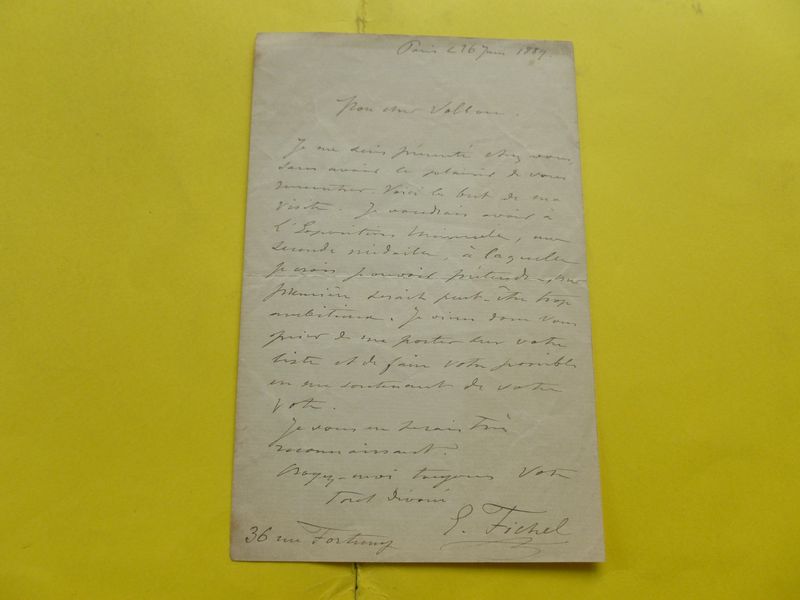 Paris le 26 Juin 1889.
Mon cher Vollon.
Je me suis présenté chez vous
sans avoir le plaisir de vous
rencontrer. Voici le but de ma
visite. Je voudrais avoir à
l'Exposition Universelle, une
seconde médaille, à laquelle
je crois pouvoir prétendre, une
première serait peut-être trop
ambitieux. Je viens donc vous
prier de me porter sur votre
liste et de faire votre possible
en me soutenant de votre
vote.
Je vous en serais très
reconnaissant.
Croyez-moi toujours votre
tout dévoué
E. Fichel
36 rue Fortuny